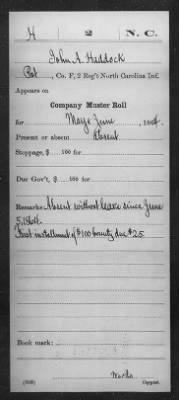 H 2 N.C.
John A. Haddock
Pvt, Co. F, 2 Reg't North Carolina Inf.
Appears on
Company Muster Roll
for May & June, 1864.
Present or absent Absent
Stoppage, $ 100 for
Due Gov't, $ 100 for
Remarks: Absent without leave since June
5, 1864.
First installment of $100 bounty due $25
Book mark:
Copyist.